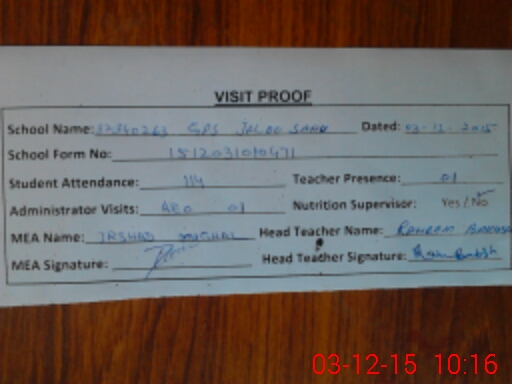 VISIT PROOF
School Name: 32340263 GPS Dated: 03-12-2015
School Form No: 1512031010471
Student Attendance: 114 Teacher Presence: 01
Administrator Visits: AEO 01 Nutrition Supervisor: Yes / No
MEA Name: IRSHAD MUGHAL Head Teacher Name: RAHEEM
MEA Signature: Head Teacher Signature:
03-12-15 10:16